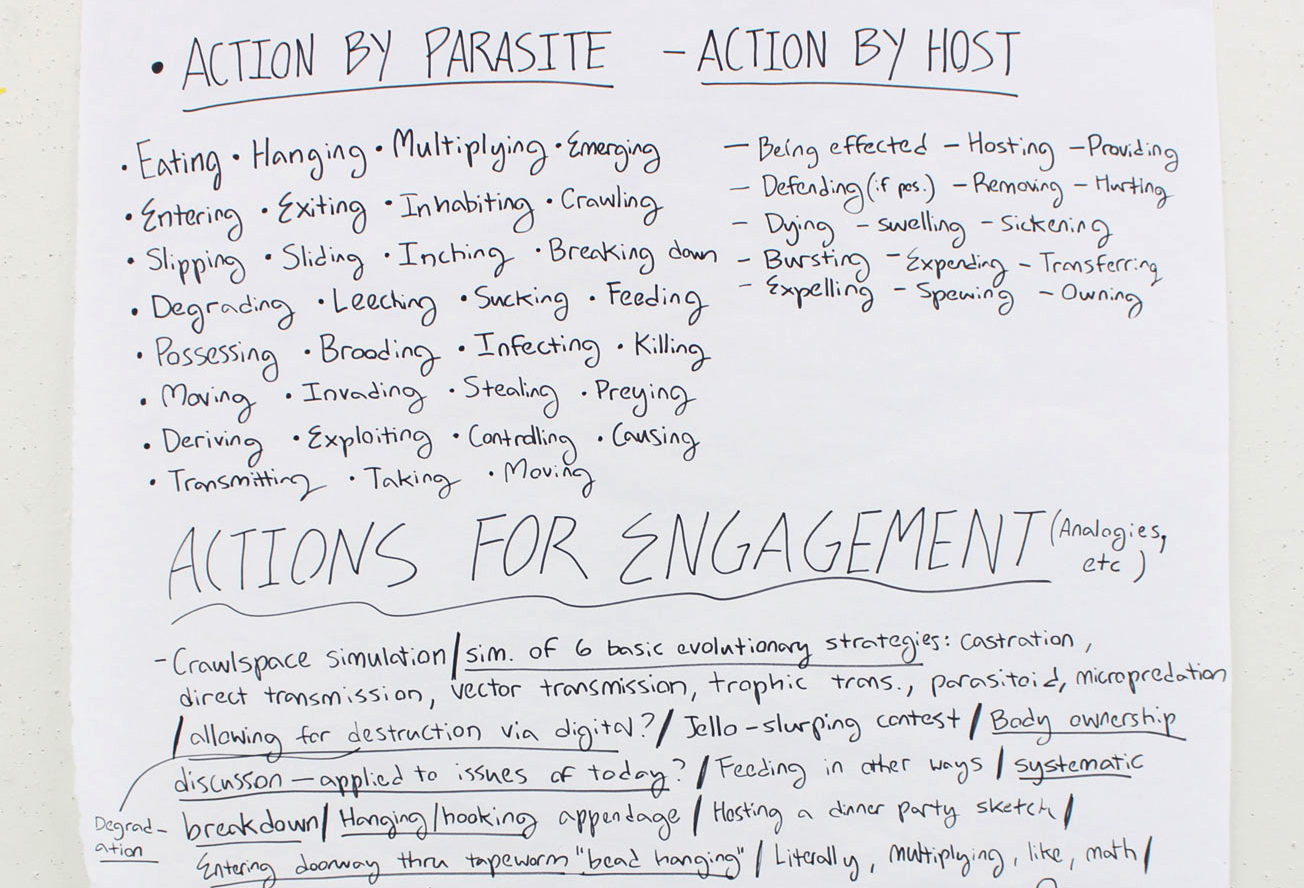 • ACTION BY PARASITE – ACTION BY HOST
• Eating • Hanging • Multiplying • Emerging
• Entering • Exiting • Inhabiting • Crawling
• Slipping • Sliding • Inching • Breaking down
• Degrading • Leeching • Sucking • Feeding
• Possessing • Brooding • Infecting • Killing
• Moving • Invading • Stealing • Preying
• Deriving • Exploiting • Controlling • Causing
• Transmitting • Taking • Moving
– Being effected – Hosting – Providing
– Defending (if pos.) – Removing – Hurting
– Dying – swelling – Sickening
– Bursting – Expending – Transferring
– Expelling – Spewing – Owning
ACTIONS FOR ENGAGEMENT (Analogies,
etc)
- Crawlspace simulation / sim. of 6 basic evolutionary strategies: castration,
direct transmission, vector transmission, trophic trans., parasitoid, micropredation
/ allowing for destruction via digital? / Jello-slurping contest / Body ownership
discusson – applied to issues of today? / Feeding in other ways / systematic
breakdown / Hanging/hooking appendage / Hosting a dinner party sketch /
Entering doorway thru tapeworm "bead hanging" / Literally, multiplying, like, math /
Degrad-
ation